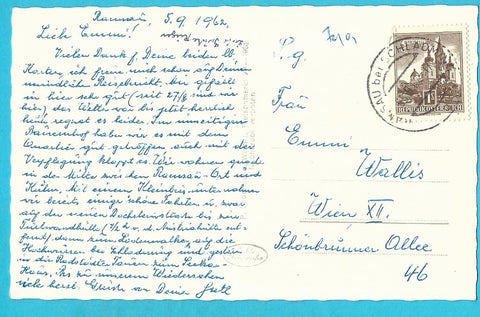 Ramsau, 5.9.1962.
Liebe Emmi!
Vielen Dank f. Deine beiden lb.
Karten, ich freue mich schon auf Deinen
mündlichen Reisebericht. Mir gefällt
es hier sehr gut (seit 27/8 sind wir
hier) das Wetter war bis jetzt herrlich
heute regnet es leider. Im
Bauernhof haben wir es mit dem
Quartier gut getroffen, auch mit der
Verpflegung klappt es. Wir wohnen grade
in der Mitte zwischen Ramsau-Ort und
Kulm. Mit einem Kleinbus unternahmen
wir bereits einige schöne Fahrten u. zwar
auf der neuen Dachsteinstraße bis zur
Türlwandhütte (¼ v. d. Austriahütte ent-
fernt) dann zum Bodensee, auf die
Hochwurzen bei Schladming und gestern
in die Radstädter Tauern zum Seekar-
Haus. Bis zu unserem Wiedersehen
viele herzl. Grüße von Deiner Gretl
P.g.
Frau
Emmi
Wallis
Wien XII.
Schönbrunner Allee
46
REPUBLIK ÖSTERREICH
RAMSAU BEI SCHLADMING